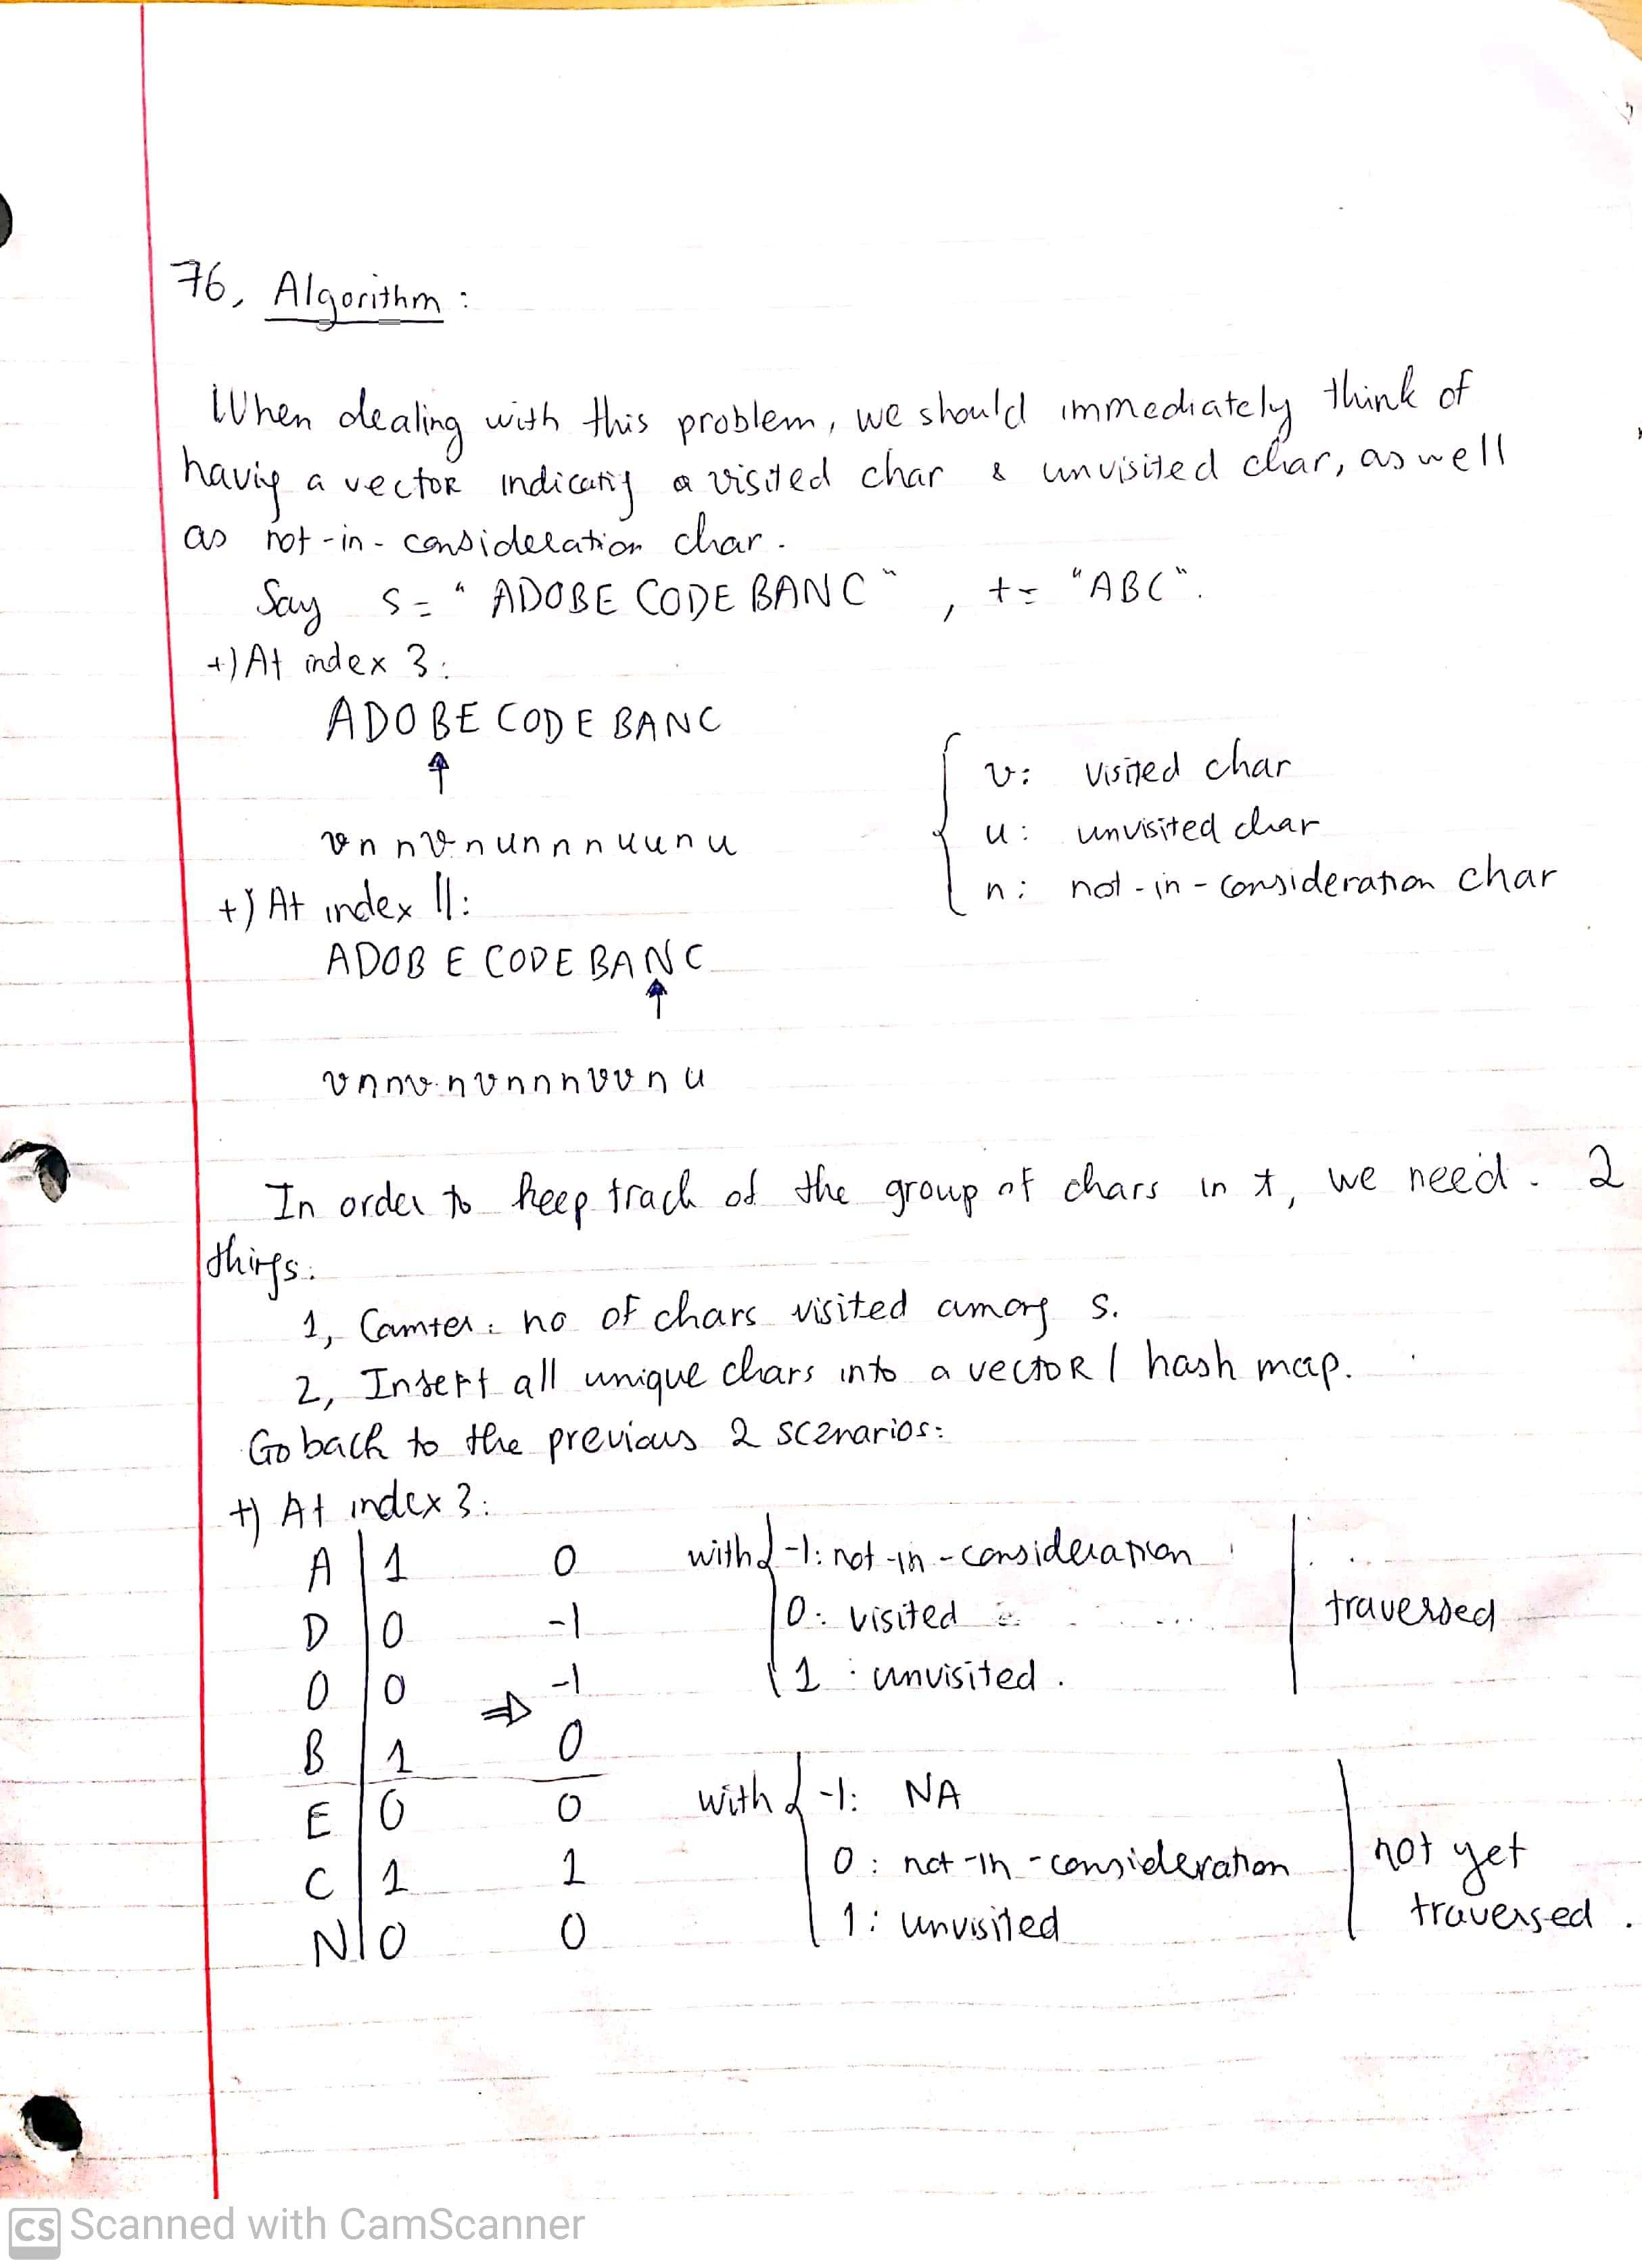 76, Algorithm :
When dealing with this problem, we should immediately think of
havig a vector indicatig a visited char & unvisited char, as well
as not-in-consideration char.
Say s = "ADOBE CODE BANC", t = "ABC".
+) At index 3:
ADOBE CODE BANC
v n n v n u n n n u u n u
v: visited char
u: unvisited char
n: not-in-consideration char
+) At index 11:
ADOBE CODE BANC
v n n v n v n n n v v n u
In order to keep track of the group of chars in t, we need 2
things:
1, Counter: no of chars visited among s.
2, Insert all unique chars into a vector / hash map.
Go back to the previous 2 scenarios:
+) At index 3:
A | 1 0 with { -1: not-in-consideration
D | 0 -1 0: visited | traversed
O | 0 ⇒ -1 1: unvisited.
B | 1 0
E | 0 0 with { -1: NA
C | 1 1 0: not-in-consideration | not yet
N | 0 0 1: unvisited traversed.
CS Scanned with CamScanner